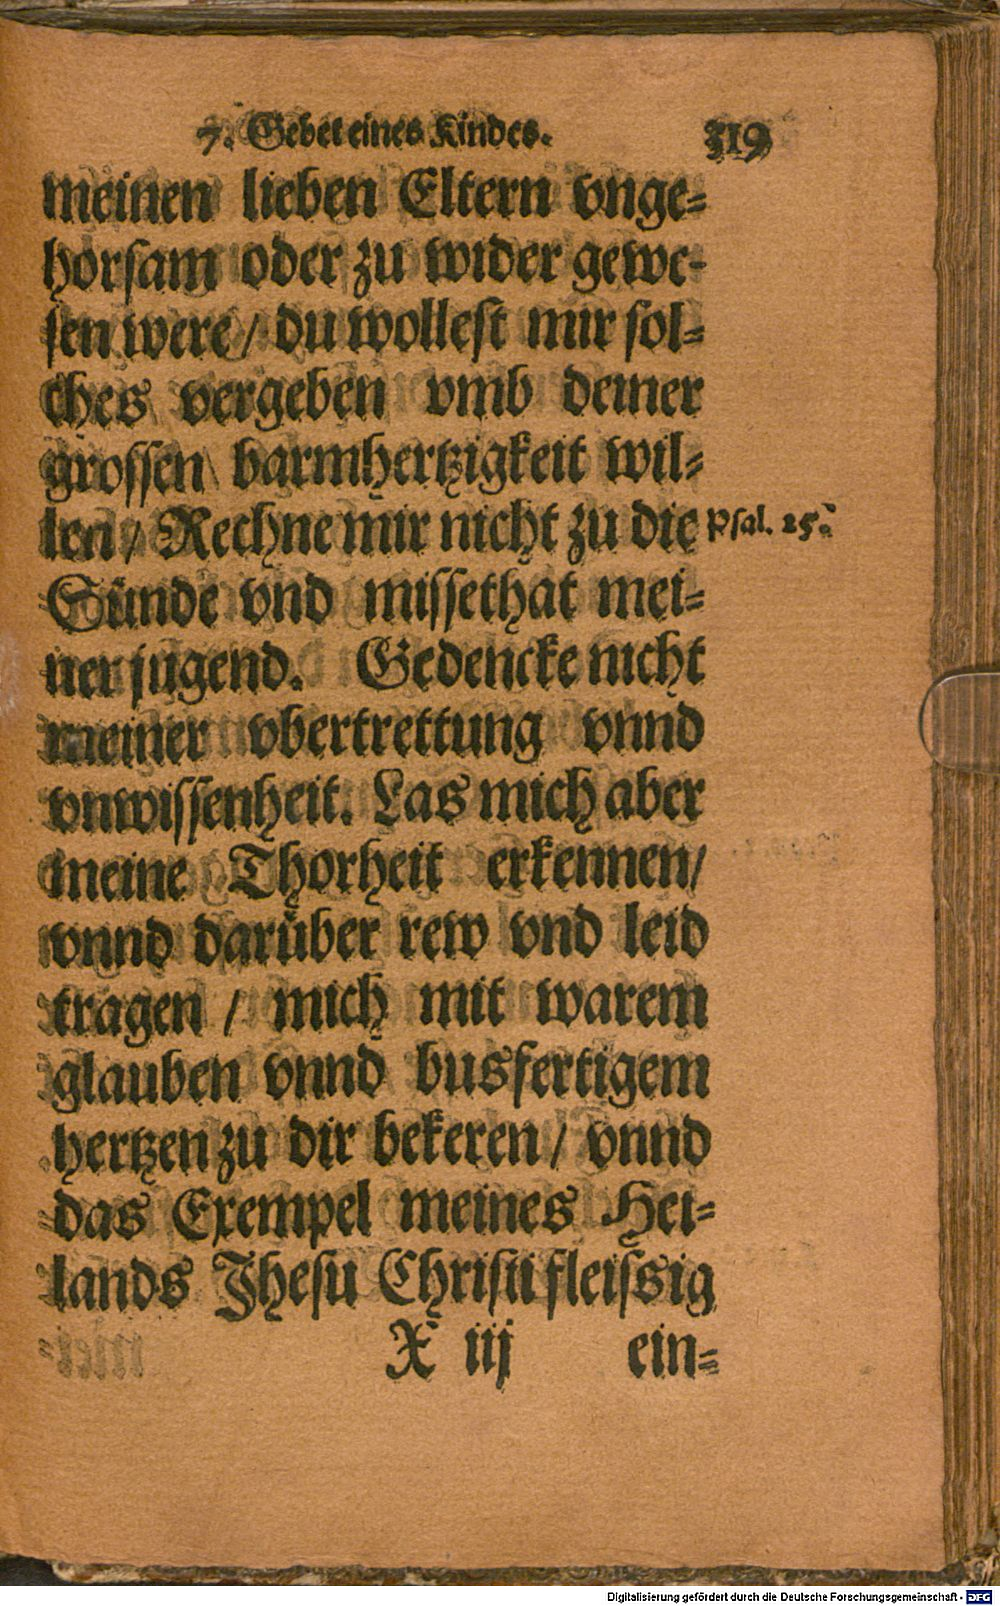 7. Gebet eines Kindes. 319
meinen lieben Eltern vnge=
horsam oder zu wider gewe=
sen were / du wollest mir sol=
ches vergeben vmb deiner
grossen barmhertzigkeit wil=
len / Rechne mir nicht zu die Psal. 25.
Sünde vnd missethat mei=
ner jugend. Gedencke nicht
meiner vbertrettung vnnd
vnwissenheit. Las mich aber
meine Thorheit erkennen /
vnnd darüber rew vnd leid
tragen / mich mit warem
glauben vnnd busfertigem
hertzen zu dir bekeren / vnnd
das Exempel meines Hei=
lands Jhesu Christi fleissig
X iij ein=
Digitalisierung gefördert durch die Deutsche Forschungsgemeinschaft - DFG